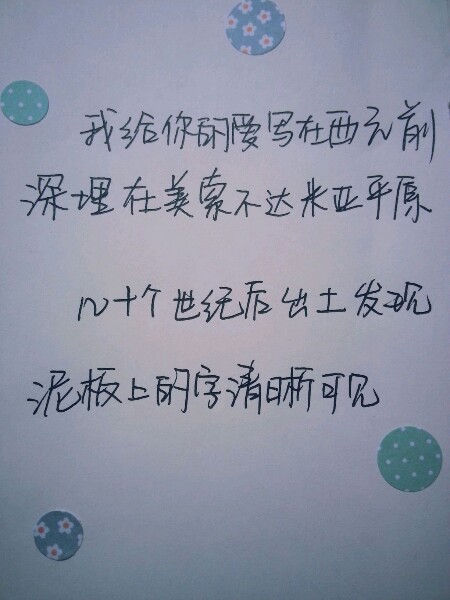 我给你的爱写在西元前
深埋在美索不达米亚平原
几十个世纪后出土发现
泥板上的字清晰可见